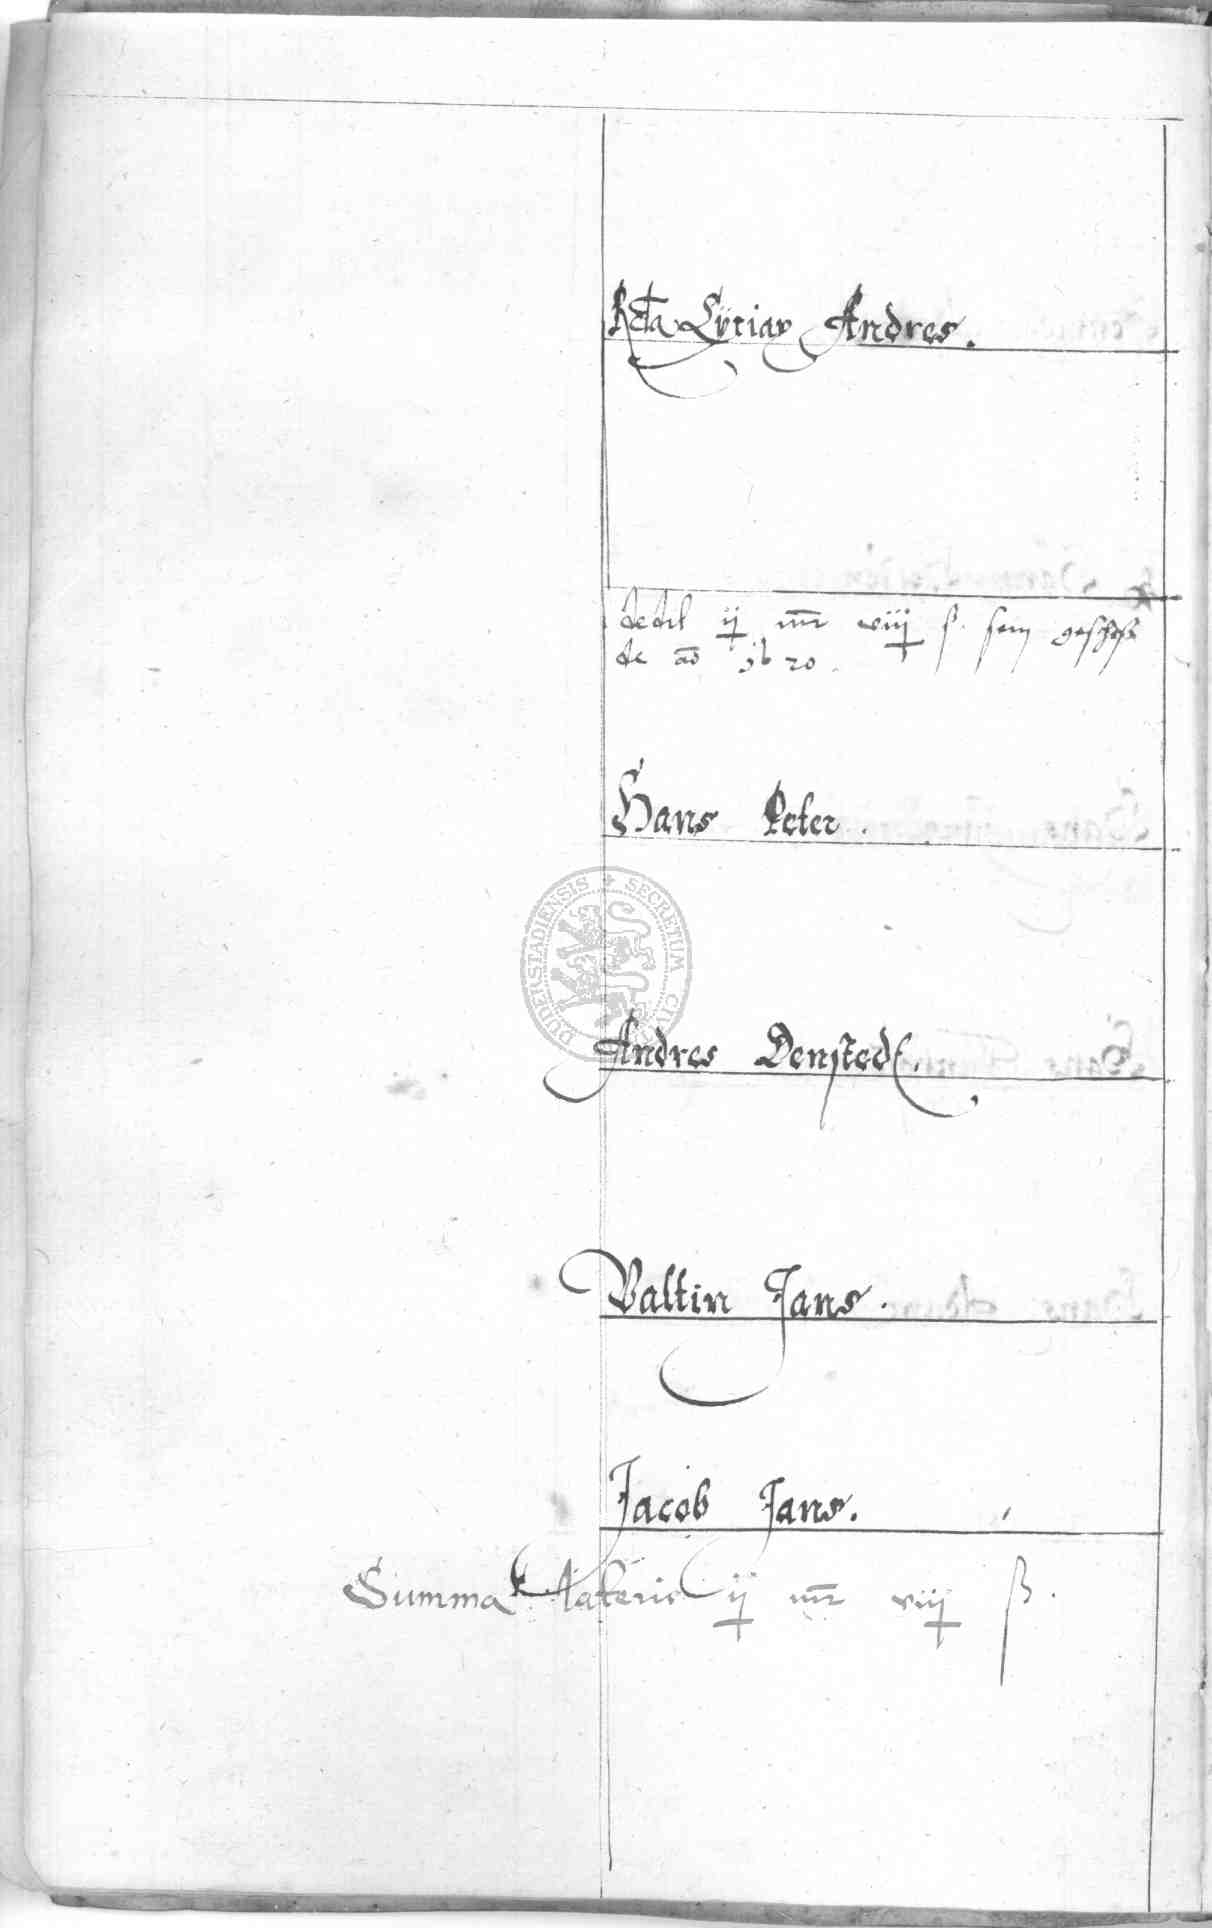 Rcta Cÿriax Andres.
dedit ij mr viij ß. sein geschoß
de ao 1620.
Hans Peter.
DUDERSTADIENSIS SECRETUM CIVI
Andres Denstedt.
Valtin Jans.
Jacob Jans.
Summa Lateris ij mr viij ß.